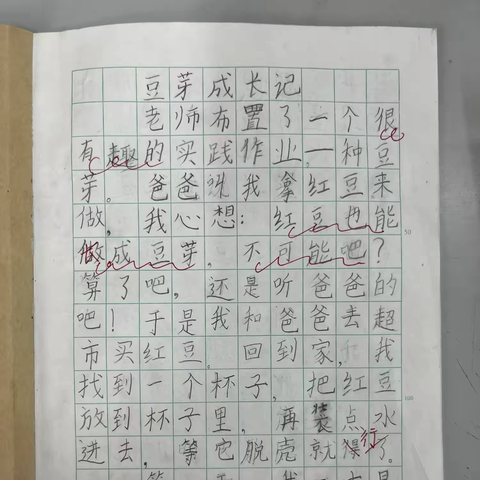 豆芽成长记
老师布置了一个很
有趣的实践作业,一种豆
芽。爸爸说我拿红豆来
做,我心想:红豆也能
做成豆芽,不可能吧?
算了吧,还是听爸爸的
吧!于是我和爸爸去超
市买红豆。回到家,我
找到一个杯子,把红豆
放到杯子里,再装点水
进去,等它脱壳就行了。
50
100